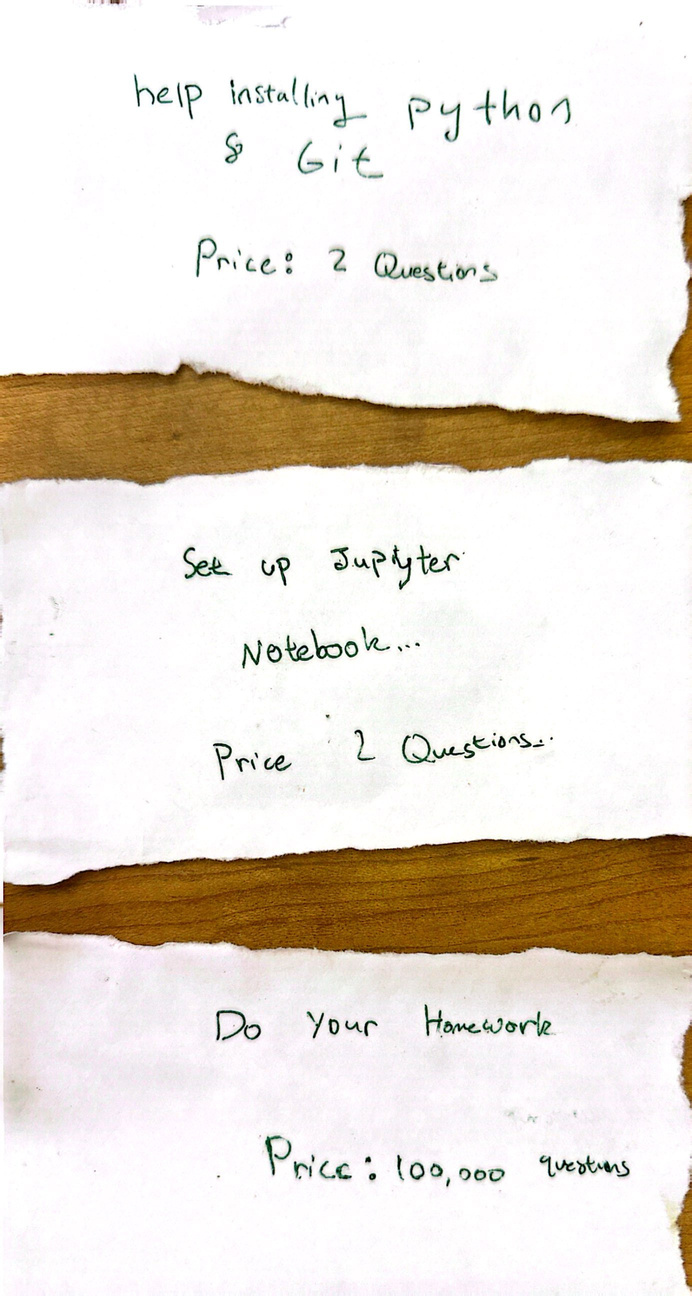 help installing python
& Git
Price: 2 Questions
Set up Jupyter
Notebook...
Price 2 Questions...
Do Your Homework
Price: 100,000 questions